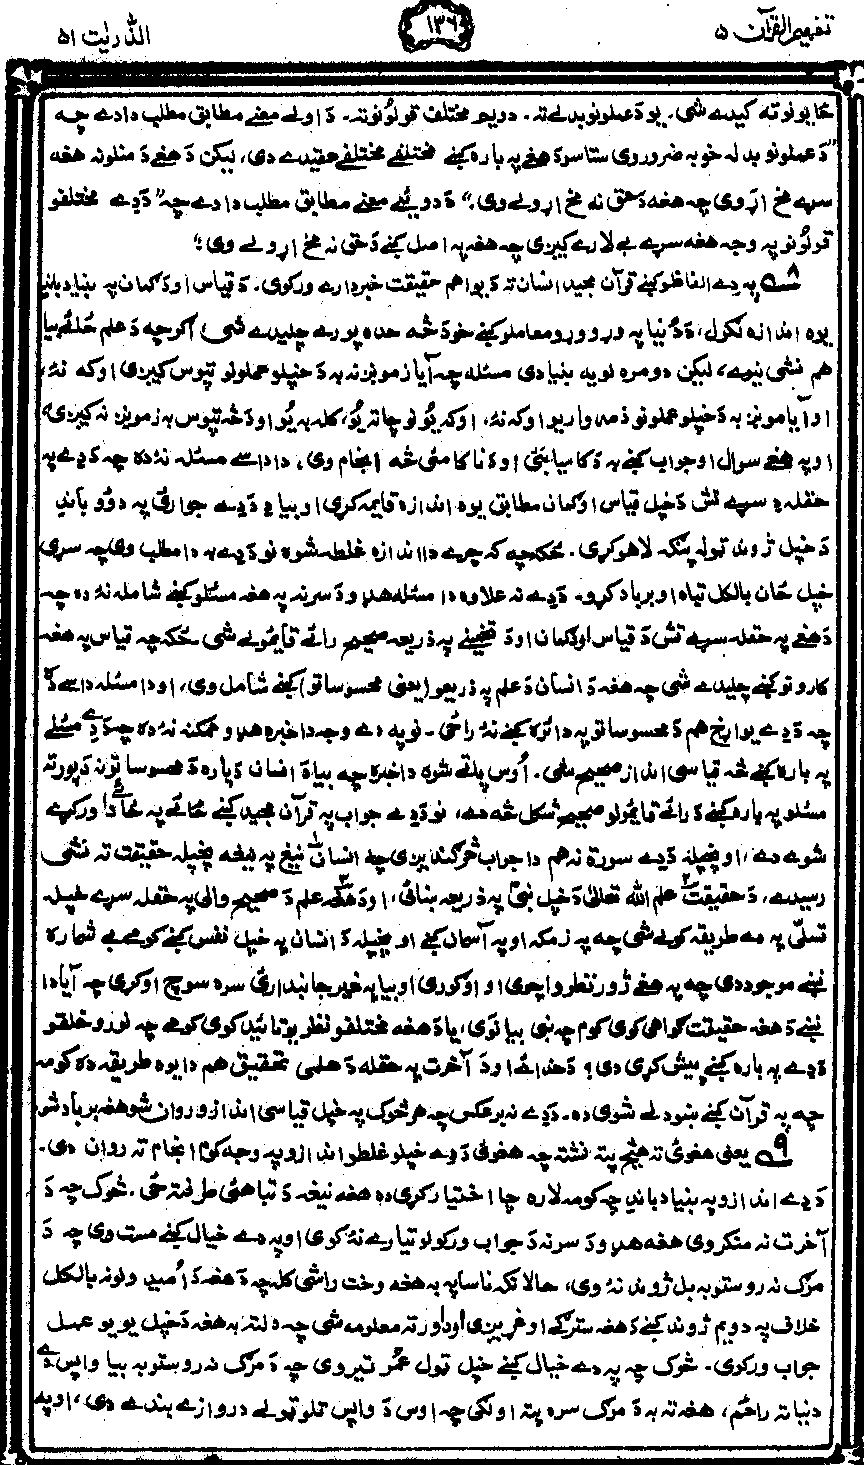 تفهیم القرآن ۵
۱۳۶
الذّٰریٰت ۵۱
ځایونو ته کیدے شی. یو د عملونو بدلے ته. دویم مختلف قولونو ته. د اولے معنے مطابق مطلب دا دے چه
"د عملونو بدله خو به ضروروی ستاسو د هغے په باره کښے مختلفے مختلفے عقیدے دی، لیکن د هغے د منلو نه هغه
سړے مخ اړوی چه هغه د حق نه مخ اړولے وی." د دویمے معنے مطابق مطلب دا دے چه "د دے مختلفو
قولونو په وجه هغه سړے بے لارے کیږی چه هغه په اصل کښے د حق نه مخ اړولے وی."
۸ په دے الفاظو کښے قرآن مجید انسان ته د یو اهم حقیقت خبردارے ورکوی. د قیاس او د ګمان په بنیاد باندے
یوه اندازه لګول، د دنیا په وړو وړو معاملو کښے خو د څه حده پورے چلیدے شی، اګرچه د علم ځائے بیا
هم نشی نیوے، لیکن دومره لویه بنیادی مسئله چه آیا زمونږ نه به د خپلو عملونو تپوس کیږی او که نهٔ،
او آیا مونږ به د خپلو عملونو ذمه واریو او که نهٔ، او که یُو نو چا ته یُو، کله به یُو او د څه تپوس به زمونږ نه کیږی،
او په هغے سوال او جواب کښے به د کامیابئی او د ناکامئی څه انجام وی، دا داسے مسئله نهٔ ده چه د دے په
حقله دِ سړے تش د خپل قیاس او ګمان مطابق یوه اندازه قایمه کړی او بیا دِ د دے جوارئ په دوؤ باندے
د خپل ژوند ټوله پنګه لاهو کړی. ځکه چه که چرے دا اندازه غلطه شوه نو د دے به دا مطلب وی چه سړی
خپل ځان بالکل تباه او برباد کړو. د دے نه علاوه دا مسئله هډو د سره نه په هغه مسئلو کښے شامله نهٔ ده چه
د هغے په حقله سړے تش د قیاس او ګمان او د تخمینے په ذریعه صحیح رائے قایمولے شی. ځکه چه قیاس په هغه
کارونو کښے چلیدے شی چه هغه د انسان د علم په ذریعو (یعنی محسوساتو) کښے شامل وی، او دا مسئله داسے ده
چه د دے یو اړخ هم د محسوساتو په دائره کښے نهٔ راځی. نو په دے وجه دا خبره هډو ممکنه نهٔ ده چه د دے مسئلے
په باره کښے څه قیاسی اندازه صحیح شی. اُوس پاتے شوه دا خبره چه بیا د انسان دپاره د محسوساتو نه د پورته
مسئلو په باره کښے د رائے قایمولو صحیح شکل څه دے، نو د دے جواب په قرآن مجید کښے ځائے په ځائے دا ورکړے
شوے دے، او پخپله د دے سورة نه هم دا جواب څرګندیږی چه انسان نیغ په نیغه پخپله حقیقت ته نشی
رسیدے، د حقیقت علم اللّٰه تعالیٰ د خپل نبیؐ په ذریعه بنائی، او د هغه علم د صحیح والی په حقله سړے خپله
تسلّی په دے طریقه کولے شی چه په زمکه او په آسمان کښے او پخپله د انسان په خپل نفس کښے کومے بے شماره
نښے موجود دی چه په هغے ژور نظر واچوی او اُوګوری او بیا په غیر جانبدارئ سره سوچ اوکړی چه آیا دا
نښے د هغه حقیقت ګواهی کوی کوم چه نبی بیانوی، یا د هغه مختلفو نظریو تائید کوی کومے چه نورو خلقو
د دے په باره کښے پیش کړی دی؟ د خدائے او د آخرت په حقله د علمی تحقیق هم دا یوه طریقه ده کومه
چه په قرآن کښے ښودلے شوی ده. د دے نه برعکس چه هر څوک په خپل قیاسی اندازو روان شو هغه برباد شو.
۹ یعنی هغوئ ته هیڅ پته نشته چه هغوئ د دے خپلو غلطو اندازو په وجه کوم انجام ته روان دی.
د دے اندازو په بنیاد باندے چه کومه لاره چا اختیار کړی ده هغه نیغه د تباهئی طرف ته ځی. څوک چه د
آخرت نه منکر وی هغه هډو د سره نه د جواب ورکولو تیارے نهٔ کوی او په دے خیال کښے مست وی چه د
مرګ نه روستو به بل ژوند نهٔ وی، حالانکه ناساپه به هغه وخت راشی کله چه د هغه د اُمیدونو نه بالکل
خلاف په دویم ژوند کښے د هغه سترګے اوغړیږی او ورته معلومه شی چه دلته به هغه د خپل یو یو عمل
جواب ورکوی. څوک چه په دے خیال کښے خپل ټول عُمر تیروی چه د مرګ نه روستو به بیا واپس دے
دنیا ته راځم، هغه ته به د مرګ سره پته اولګی چه اوس د واپس تلو ټولے دروازے بندے دی، او په